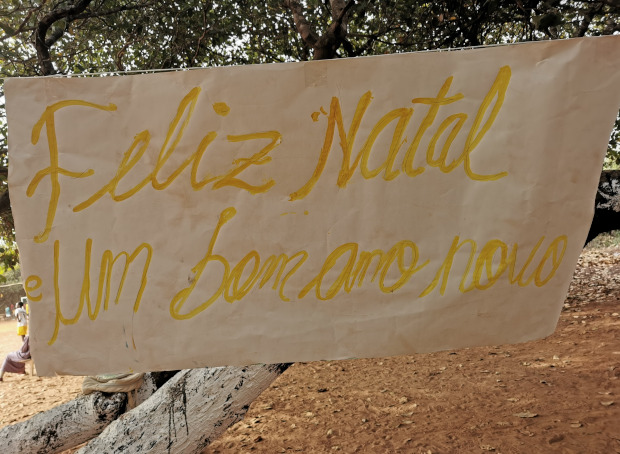 Feliz Natal
e Um bom ano novo